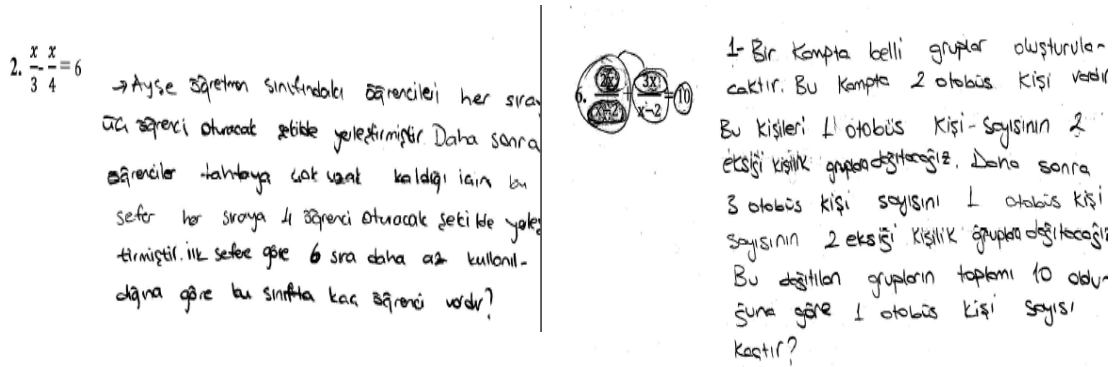 2. x/3 - x/4 = 6
→ Ayşe öğretmen sınıfındaki öğrencileri her sıraya
üç öğrenci oturacak şekilde yerleştirmiştir. Daha sonra
öğrenciler tahtaya çok uzak kaldığı için bu
sefer her sıraya 4 öğrenci oturacak şekilde yerleş
tirmiştir. ilk sefere göre 6 sıra daha az kullanıl-
dığına göre bu sınıfta kaç öğrenci vardır?
6. 2x/x-2 + 3x/x-2 = 10
1- Bir kampta belli gruplar oluşturula-
caktır. Bu kampta 2 otobüs kişi vardır
Bu kişileri 1 otobüs kişi sayısının 2
eksiği kişilik gruplara dağıtacağız. Daha sonra
3 otobüs kişi sayısını 1 otobüs kişi
sayısının 2 eksiği kişilik gruplara dağıtacağız
Bu dağıtılan grupların toplamı 10 oldu-
ğuna göre 1 otobüs kişi sayısı
kaçtır?